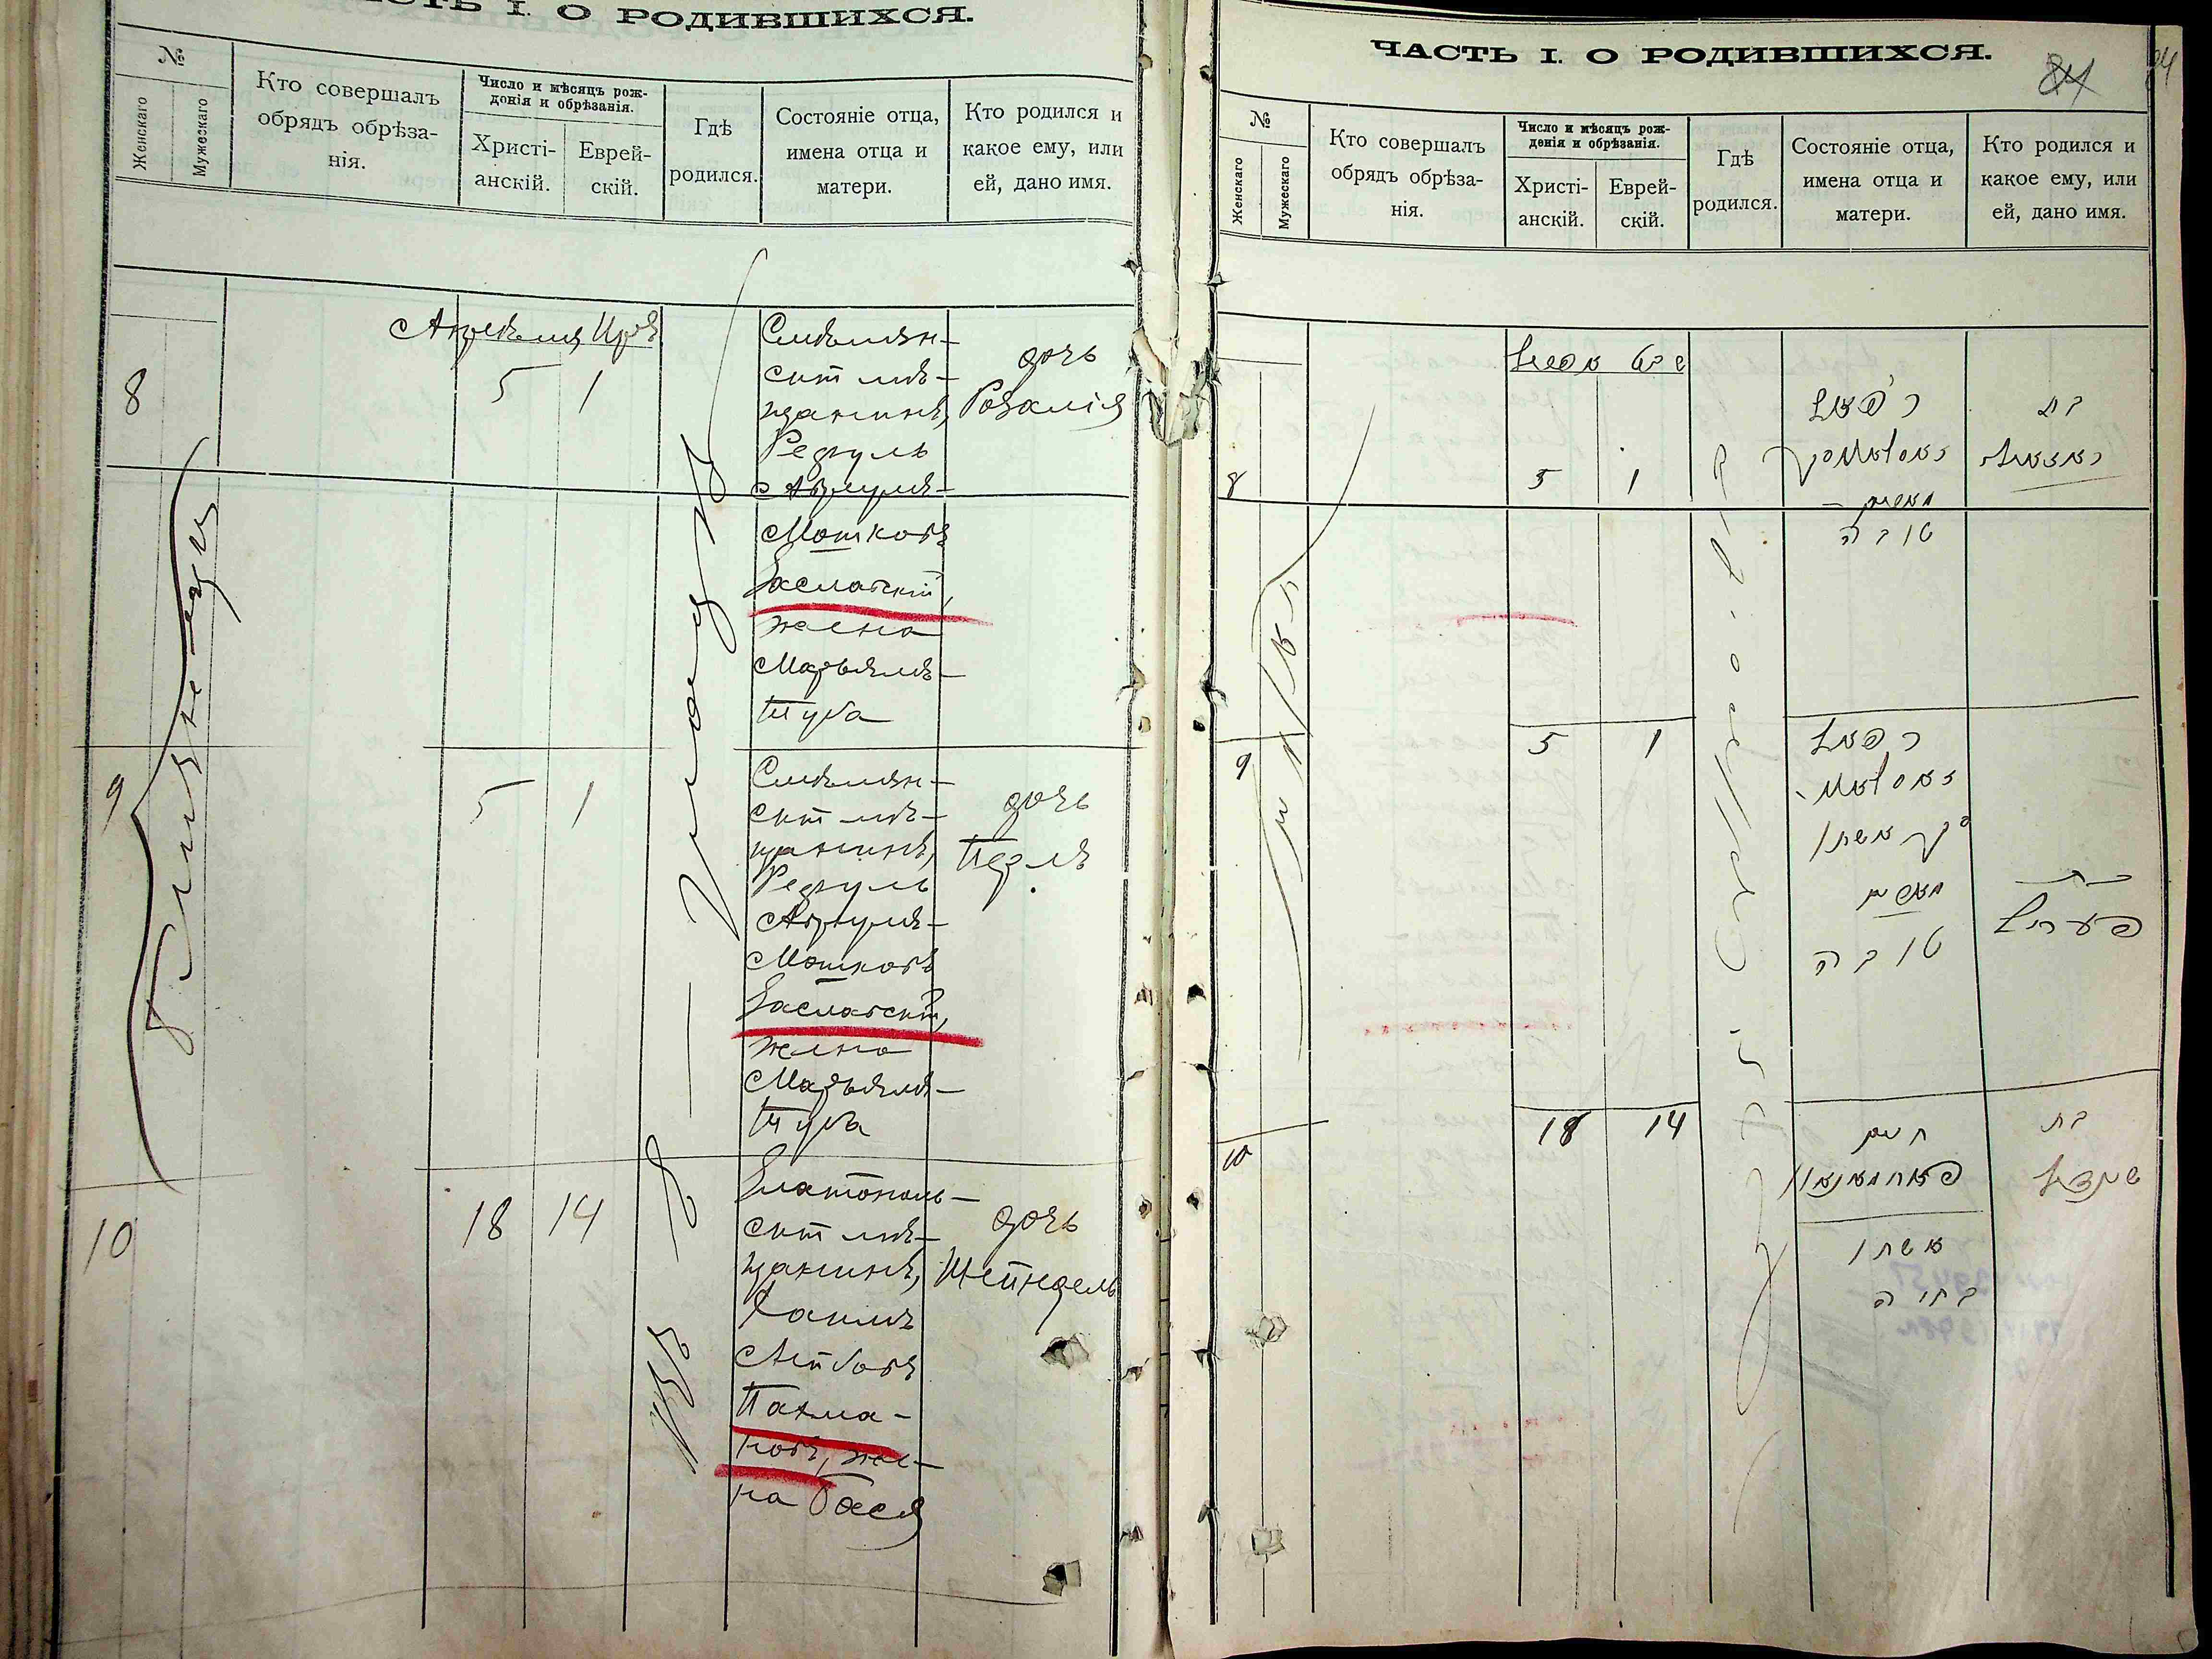 ЧАСТЬ I. О РОДИВШИХСЯ.
№
Женскаго
Мужескаго
Кто совершалъ
обрядъ обрѣза-
нія.
Число и мѣсяцъ рож-
денія и обрѣзанія.
Христі-
анскій.
Еврей-
скій.
Гдѣ
родился.
Состояніе отца,
имена отца и
матери.
Кто родился и
какое ему, или
ей, дано имя.
8
Близнецы
Апрѣля
5
1
Смѣлян-
скій мѣ-
щанинъ,
Рефуль
Мошковъ
Заславскій,
жена
Марьямъ-
Туба
дочь
Розалія
9
5
1
Смѣлян-
скій мѣ-
щанинъ,
Рефуль
Мошковъ
Заславскій,
жена
Марьямъ-
Туба
дочь
Перль
10
18
14
въ
Златополь-
скій мѣ-
щанинъ,
Хаимъ
Лейбовъ
Пахма-
новъ, же-
на Бася
дочь
Шейндель
ЧАСТЬ I. О РОДИВШИХСЯ.
84
№
Женскаго
Мужескаго
Кто совершалъ
обрядъ обрѣза-
нія.
Число и мѣсяцъ рож-
денія и обрѣзанія.
Христі-
анскій.
Еврей-
скій.
Гдѣ
родился.
Состояніе отца,
имена отца и
матери.
Кто родился и
какое ему, или
ей, дано имя.
8
5
1
רפאל
טובה
בת
9
5
1
רפאל
אשתו
טובה
בת
פעריל
10
18
14
חיים
אשתו
בת